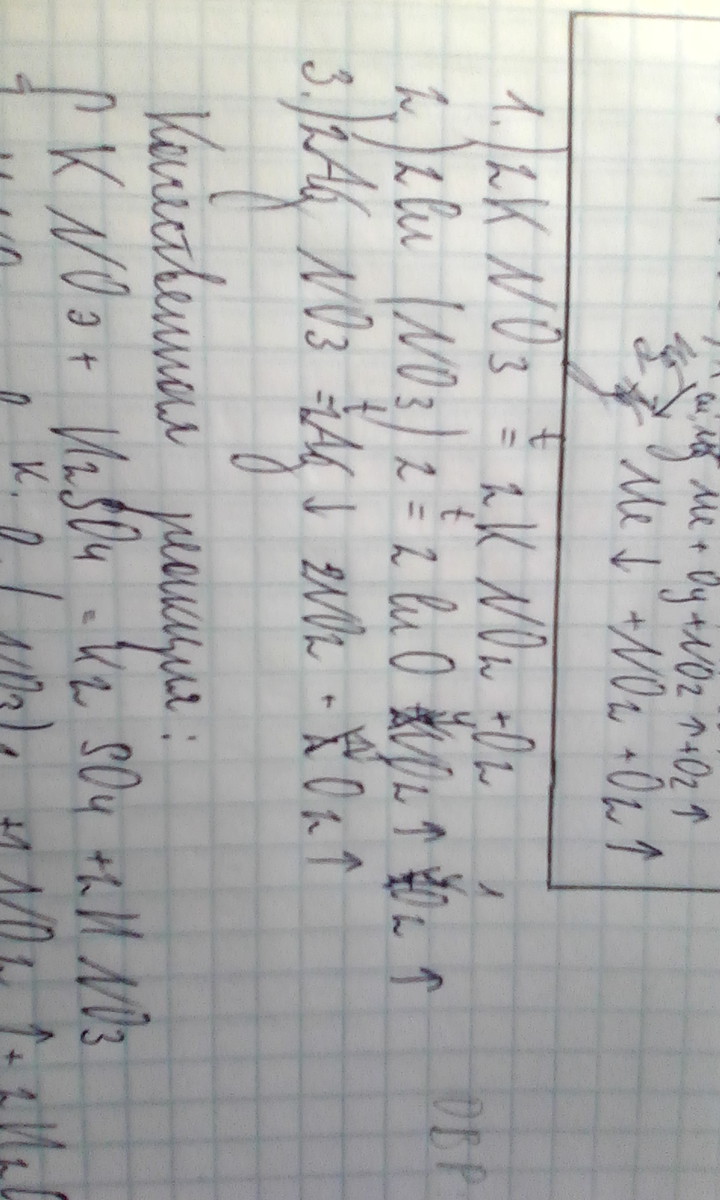 Me + Oy + NO2 ↑ + O2 ↑
Me ↓ + NO2 + O2 ↑
1.) 2K NO3 =t 2K NO2 + O2
2.) 2Cu (NO3) 2 =t 2 CuO 4NO2 ↑ O2 ↑
3.) 2Ag NO3 =t 2Ag ↓ 2NO2 + O2 ↑
ОВР
Качественная реакция:
K NO3 + H2SO4 = K2 SO4 + 2H NO3
NO3)2 + 2 NO2 ↑ + 2H2O